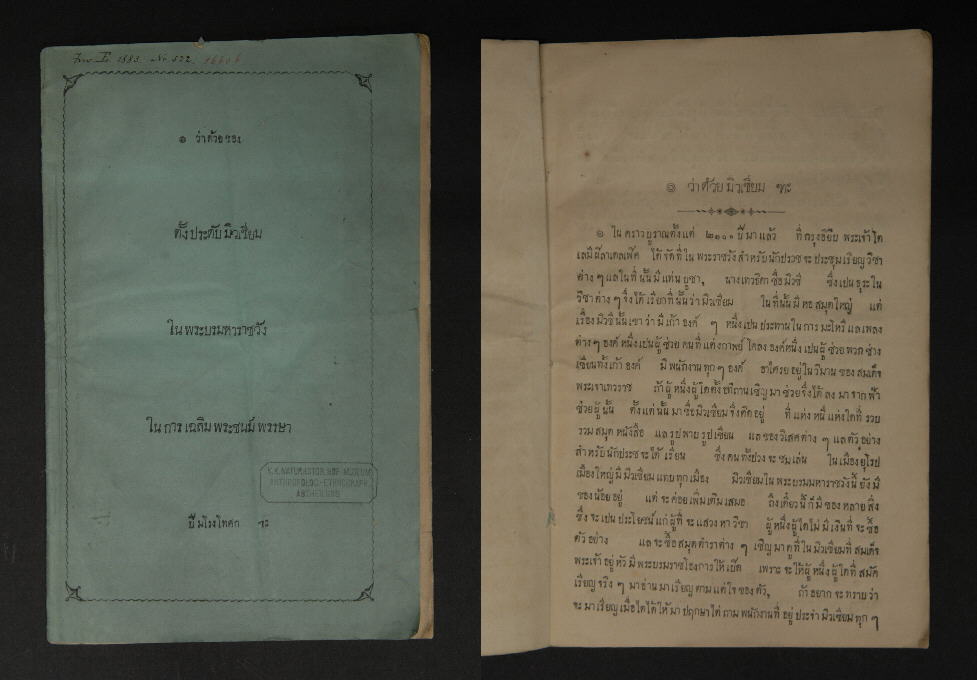 Inv. I. 1883. No. 522. 16606
๑ ว่าด้วยของ
ตั้งประดับมิวเซียม
ใน พระบรมมหาราชวัง
ใน การ เฉลิม พระชนม์ พรรษา
K.K. NATURHISTOR. HOF-MUSEUM
ANTHROPOLOG.-ETHNOGRAPH.
ABTHEILUNG
ปีมโรงโทศก ฯะ
๑ ว่าด้วย มิวเซียม ฯะ
๑ ใน คราว บูราณตั้งแต่ ๒๑๐๐ ปีมา แล้ว ที่ กรุงอียิบ พระเจ้าโต
เลมีฝิลาเดลเฟศ ได้ จัดที่ใน พระราชวังสำหรับนักปราช จะ ประชุม เรียญ วิชา
ต่าง ๆ แลในที่ นั้นมีแท่น บูชา, นางเทวธิดา ชื่อ มิวซี ซึ่งเปน ธุระ ใน
วิชาต่าง ๆ จึงได้ เรียกที่นั้นว่ามิวเซียม ในที่นั้น มี หอ สมุดใหญ่ แต่
เรื่อง มิวซีนั้นเขา ว่า มีเก้า องค์ ๆ หนึ่งเปน ประทานใน การ มะโหรี แลเพลง
ต่าง ๆ องค์ หนึ่งเปนผู้ ช่วย คนที่ แต่งกาพย์ โคลง องค์หนึ่ง เปนผู้ ช่วย พวก ช่าง
เขียนทั้งเก้า องค์ มี พนักงาน ทุก ๆ องค์ อาไศรย อยู่ใน วิมาน ของ สมเด็จ
พระเจ้าเทวราช ถ้า ผู้ หนึ่งผู้ ใดตั้งอะทิถานเชิญ มา ช่วย จึงได้ ลง มา จาก ฟ้า
ช่วยผู้ นั้น ตั้งแต่นั้น มา ชื่อมิวเซียม จึงติดอยู่ ที่ แห่ง หนึ่ แห่งใดที่ รวย
รวม สมุด หนังสือ แล รูป ลาย รูปเขียน แล ของวิเสศ ต่าง ๆ แล ตัว อย่าง
สำหรับ นักปราช จะได้ เรียน ซึ่ง คน ทั้งปวง จะ ชมเล่น ใน เมือง ยุโรป
เมืองใหญ่ มี มิวเซียม แทบ ทุก เมือง มิวเซียมใน พระบรมมหาราชวังนี้ ยัง มี
ของ น้อย อยู่ แต่ จะ ค่อย เพิ่มเติม เสมอ ถึง เดี๋ยว นี้ ก็ มี ของ หลาย สิ่ง
ซึ่ง จะเปน ประโยชน์ แก่ ผู้ที่ จะ แสวง หา วิชา ผู้ หนึ่งผู้ ใดไม่ มีเงินที่ จะ ซื้อ
ตัว อย่าง แล จะ ซื้อ สมุด ตำรา ต่าง ๆ เชิญ มา ดู ที่ ใน มิวเซียมที่ สมเด็จ
พระเจ้า อยู่ หัว มี พระบรมราชโองการ ให้ เปิด เพราะ จะ ให้ผู้ หนึ่งผู้ ใดที่ สมัค
เรียญ จริง ๆ มา อ่าน มา เรียญ ตาม แต่ใจ ของ ตัว, ถ้า อยาก จะ ทราบ ว่า
จะ มา เรียญ เมื่อใดได้ ให้ มา ปฤกษาไต่ ถาม พนักงานที่ อยู่ ประจำ มิวเซียม ทุก ๆ